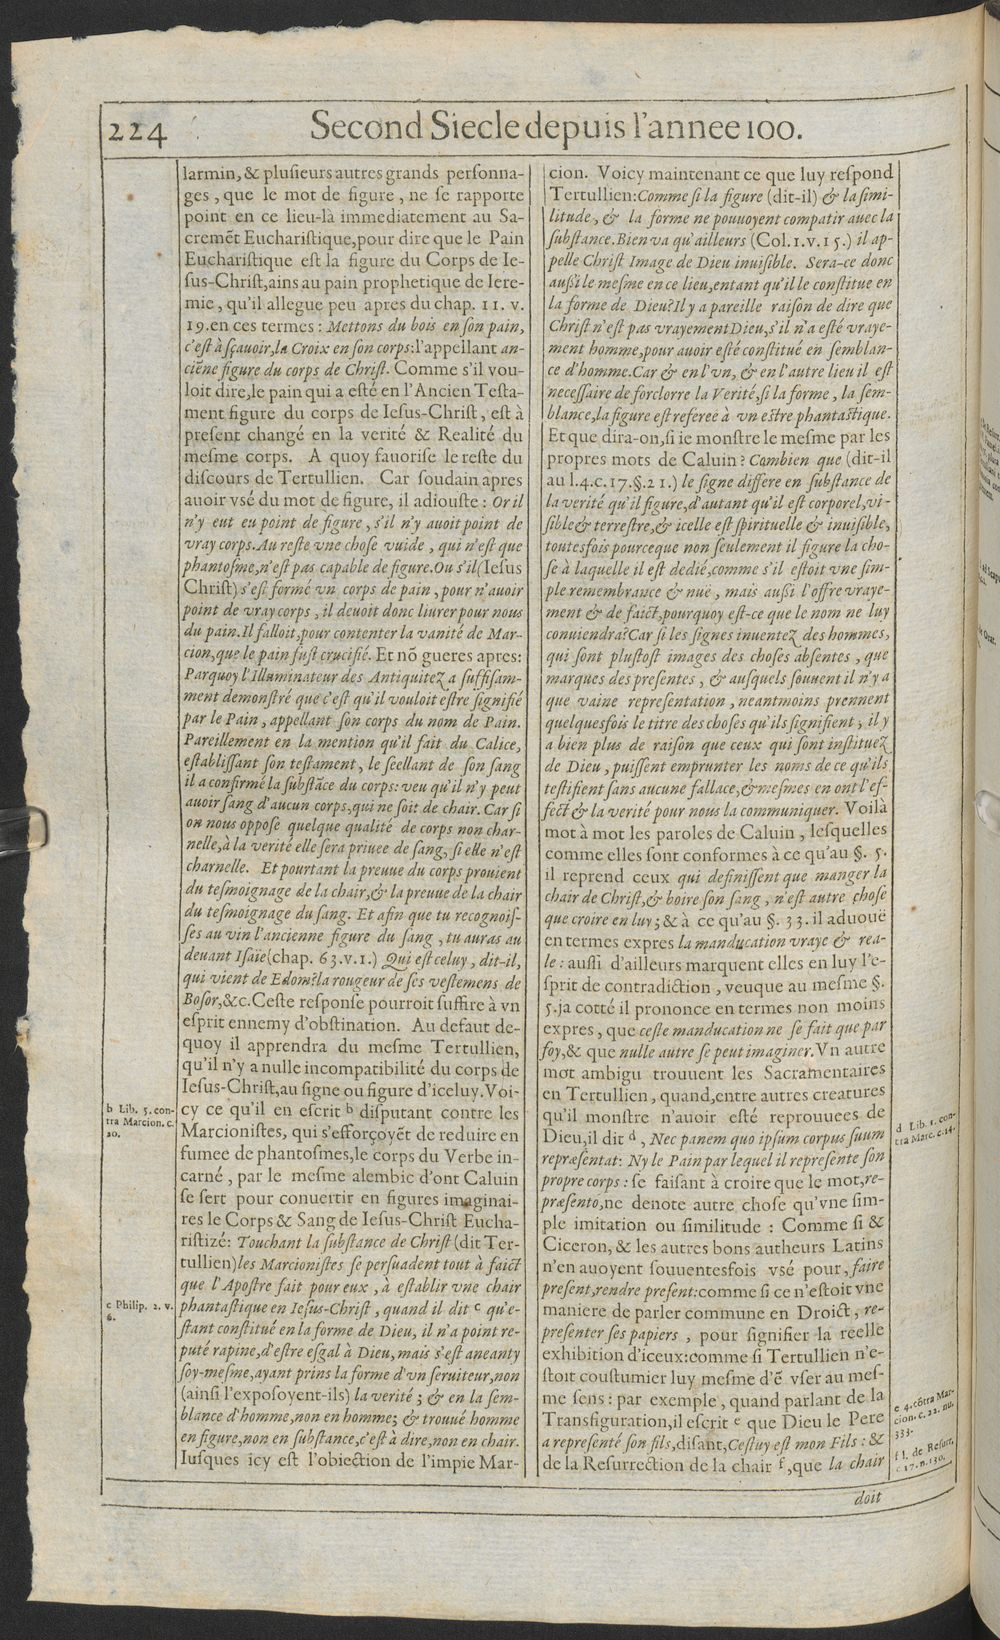 224
Second Siecle depuis l'annee 100.
larmin, & plusieurs autres grands personna-
ges, que le mot de figure, ne se rapporte
point en ce lieu-là immediatement au Sa-
cremẽt Eucharistique, pour dire que le Pain
Eucharistique est la figure du Corps de Ie-
sus-Christ, ains au pain prophetique de Iere-
mie, qu'il allegue peu apres du chap. 11. v.
19. en ces termes: Mettons du bois en son pain,
c'est à sçauoir, la Croix en son corps: l'appellant an-
ciẽne figure du corps de Christ. Comme s'il vou-
loit dire, le pain qui a esté en l'Ancien Testa-
ment figure du corps de Iesus-Christ, est à
present changé en la verité & Realité du
mesme corps. A quoy fauorise le reste du
discours de Tertullien. Car soudain apres
auoir vsé du mot de figure, il adiouste: Or il
n'y eut eu point de figure, s'il n'y auoit point de
vray corps. Au reste vne chose vuide, qui n'est que
phantosme, n'est pas capable de figure. Ou s'il (Iesus
Christ) s'est formé vn corps de pain, pour n'auoir
point de vray corps, il deuoit donc liurer pour nous
du pain. Il falloit, pour contenter la vanité de Mar-
cion, que le pain fust crucifié. Et nõ gueres apres:
Parquoy l'Illuminateur des Antiquitez a suffisam-
ment demonstré que c'est qu'il vouloit estre signifié
par le Pain, appellant son corps du nom de Pain.
Pareillement en la mention qu'il fait du Calice,
establissant son testament, le seellant de son sang
il a confirmé la substãce du corps: veu qu'il n'y peut
auoir sang d'aucun corps, qui ne soit de chair. Car si
on nous oppose quelque qualité de corps non char-
nelle, à la verité elle sera priuee de sang, si elle n'est
charnelle. Et pourtant la preuue du corps prouient
du tesmoignage de la chair, & la preuue de la chair
du tesmoignage du sang. Et afin que tu recognois-
ses au vin l'ancienne figure du sang, tu auras au
deuant Isaïe (chap. 63. v. 1.) Qui est celuy, dit-il,
qui vient de Edom? la rougeur de ses vestemens de
Bosor, &c. Ceste response pourroit suffire à vn
esprit ennemy d'obstination. Au defaut de-
quoy il apprendra du mesme Tertullien,
qu'il n'y a nulle incompatibilité du corps de
Iesus-Christ, au signe ou figure d'iceluy. Voi-
cy ce qu'il en escrit b disputant contre les
Marcionistes, qui s'efforçoyẽt de reduire en
fumee de phantosmes, le corps du Verbe in-
carné, par le mesme alembic d'ont Caluin
se sert pour conuertir en figures imaginai-
res le Corps & Sang de Iesus-Christ Eucha-
ristizé: Touchant la substance de Christ (dit Ter-
tullien) les Marcionistes se persuadent tout à faict
que l'Apostre fait pour eux, à establir vne chair
phantastique en Iesus-Christ, quand il dit c qu'e-
stant constitué en la forme de Dieu, il n'a point re-
puté rapine, d'estre esgal à Dieu, mais s'est aneanty
soy-mesme, ayant prins la forme d'vn seruiteur, non
(ainsi l'exposoyent-ils) la verité; & en la sem-
blance d'homme, non en homme; & trouué homme
en figure, non en substance, c'est à dire, non en chair.
Iusques icy est l'obiection de l'impie Mar-
b Lib. 5. con-
tra Marcion. c.
20.
c Philip. 2. v.
6.
cion. Voicy maintenant ce que luy respond
Tertullien: Comme si la figure (dit-il) & la simi-
litude, & la forme ne pouuoyent compatir auec la
substance. Bien va qu'ailleurs (Col. 1. v. 15.) il ap-
pelle Christ Image de Dieu inuisible. Sera-ce donc
aussi le mesme en ce lieu, entant qu'il le constitue en
la forme de Dieu? Il y a pareille raison de dire que
Christ n'est pas vrayement Dieu, s'il n'a esté vraye-
ment homme, pour auoir esté constitué en semblan-
ce d'homme. Car & en l'vn, & en l'autre lieu il est
necessaire de forclorre la Verité, si la forme, la sem-
blance, la figure est referee à vn estre phantastique.
Et que dira-on, si ie monstre le mesme par les
propres mots de Caluin? Combien que (dit-il
au l. 4. c. 17. §. 21.) le signe differe en substance de
la verité qu'il figure, d'autant qu'il est corporel, vi-
sible & terrestre, & icelle est spirituelle & inuisible,
toutesfois pourceque non seulement il figure la cho-
se à laquelle il est dedié, comme s'il estoit vne sim-
ple remembrance & nuë, mais aussi l'offre vraye-
ment & de faict, pourquoy est-ce que le nom ne luy
conuiendra? Car si les signes inuentez des hommes,
qui sont plustost images des choses absentes, que
marques des presentes, & ausquels souuent il n'y a
que vaine representation, neantmoins prennent
quelquesfois le titre des choses qu'ils signifient; il y
a bien plus de raison que ceux qui sont instituez
de Dieu, puissent emprunter les noms de ce qu'ils
testifient sans aucune fallace, & mesmes en ont l'ef-
fect & la verité pour nous la communiquer. Voilà
mot à mot les paroles de Caluin, lesquelles
comme elles sont conformes à ce qu'au §. 5.
il reprend ceux qui definissent que manger la
chair de Christ, & boire son sang, n'est autre chose
que croire en luy; & à ce qu'au §. 33. il aduouë
en termes expres la manducation vraye & rea-
le: aussi d'ailleurs marquent elles en luy l'e-
sprit de contradiction, veuque au mesme §.
5. ja cotté il prononce en termes non moins
expres, que ceste manducation ne se fait que par
foy, & que nulle autre se peut imaginer. Vn autre
mot ambigu trouuent les Sacramentaires
en Tertullien, quand, entre autres creatures
qu'il monstre n'auoir esté reprouuees de
Dieu, il dit d, Nec panem quo ipsum corpus suum
repræsentat: Ny le Pain par lequel il represente son
propre corps: se faisant à croire que le mot, re-
præsento, ne denote autre chose qu'vne sim-
ple imitation ou similitude: Comme si &
Ciceron, & les autres bons autheurs Latins
n'en auoyent souuentesfois vsé pour, faire
present, rendre present: comme si ce n'estoit vne
maniere de parler commune en Droict, re-
presenter ses papiers, pour signifier la reelle
exhibition d'iceux: comme si Tertullien n'e-
stoit coustumier luy mesme d'ẽ vser au mes-
me sens: par exemple, quand parlant de la
Transfiguration, il escrit e que Dieu le Pere
a representé son fils, disant, Cestuy est mon Fils: &
de la Resurrection de la chair f, que la chair
d Lib. 1. con-
tra Marc. c. 14.
e 4. cõtra Mar-
cion. c. 22. nu.
333.
f l. de Resurr.
c. 17. n. 130.
doit